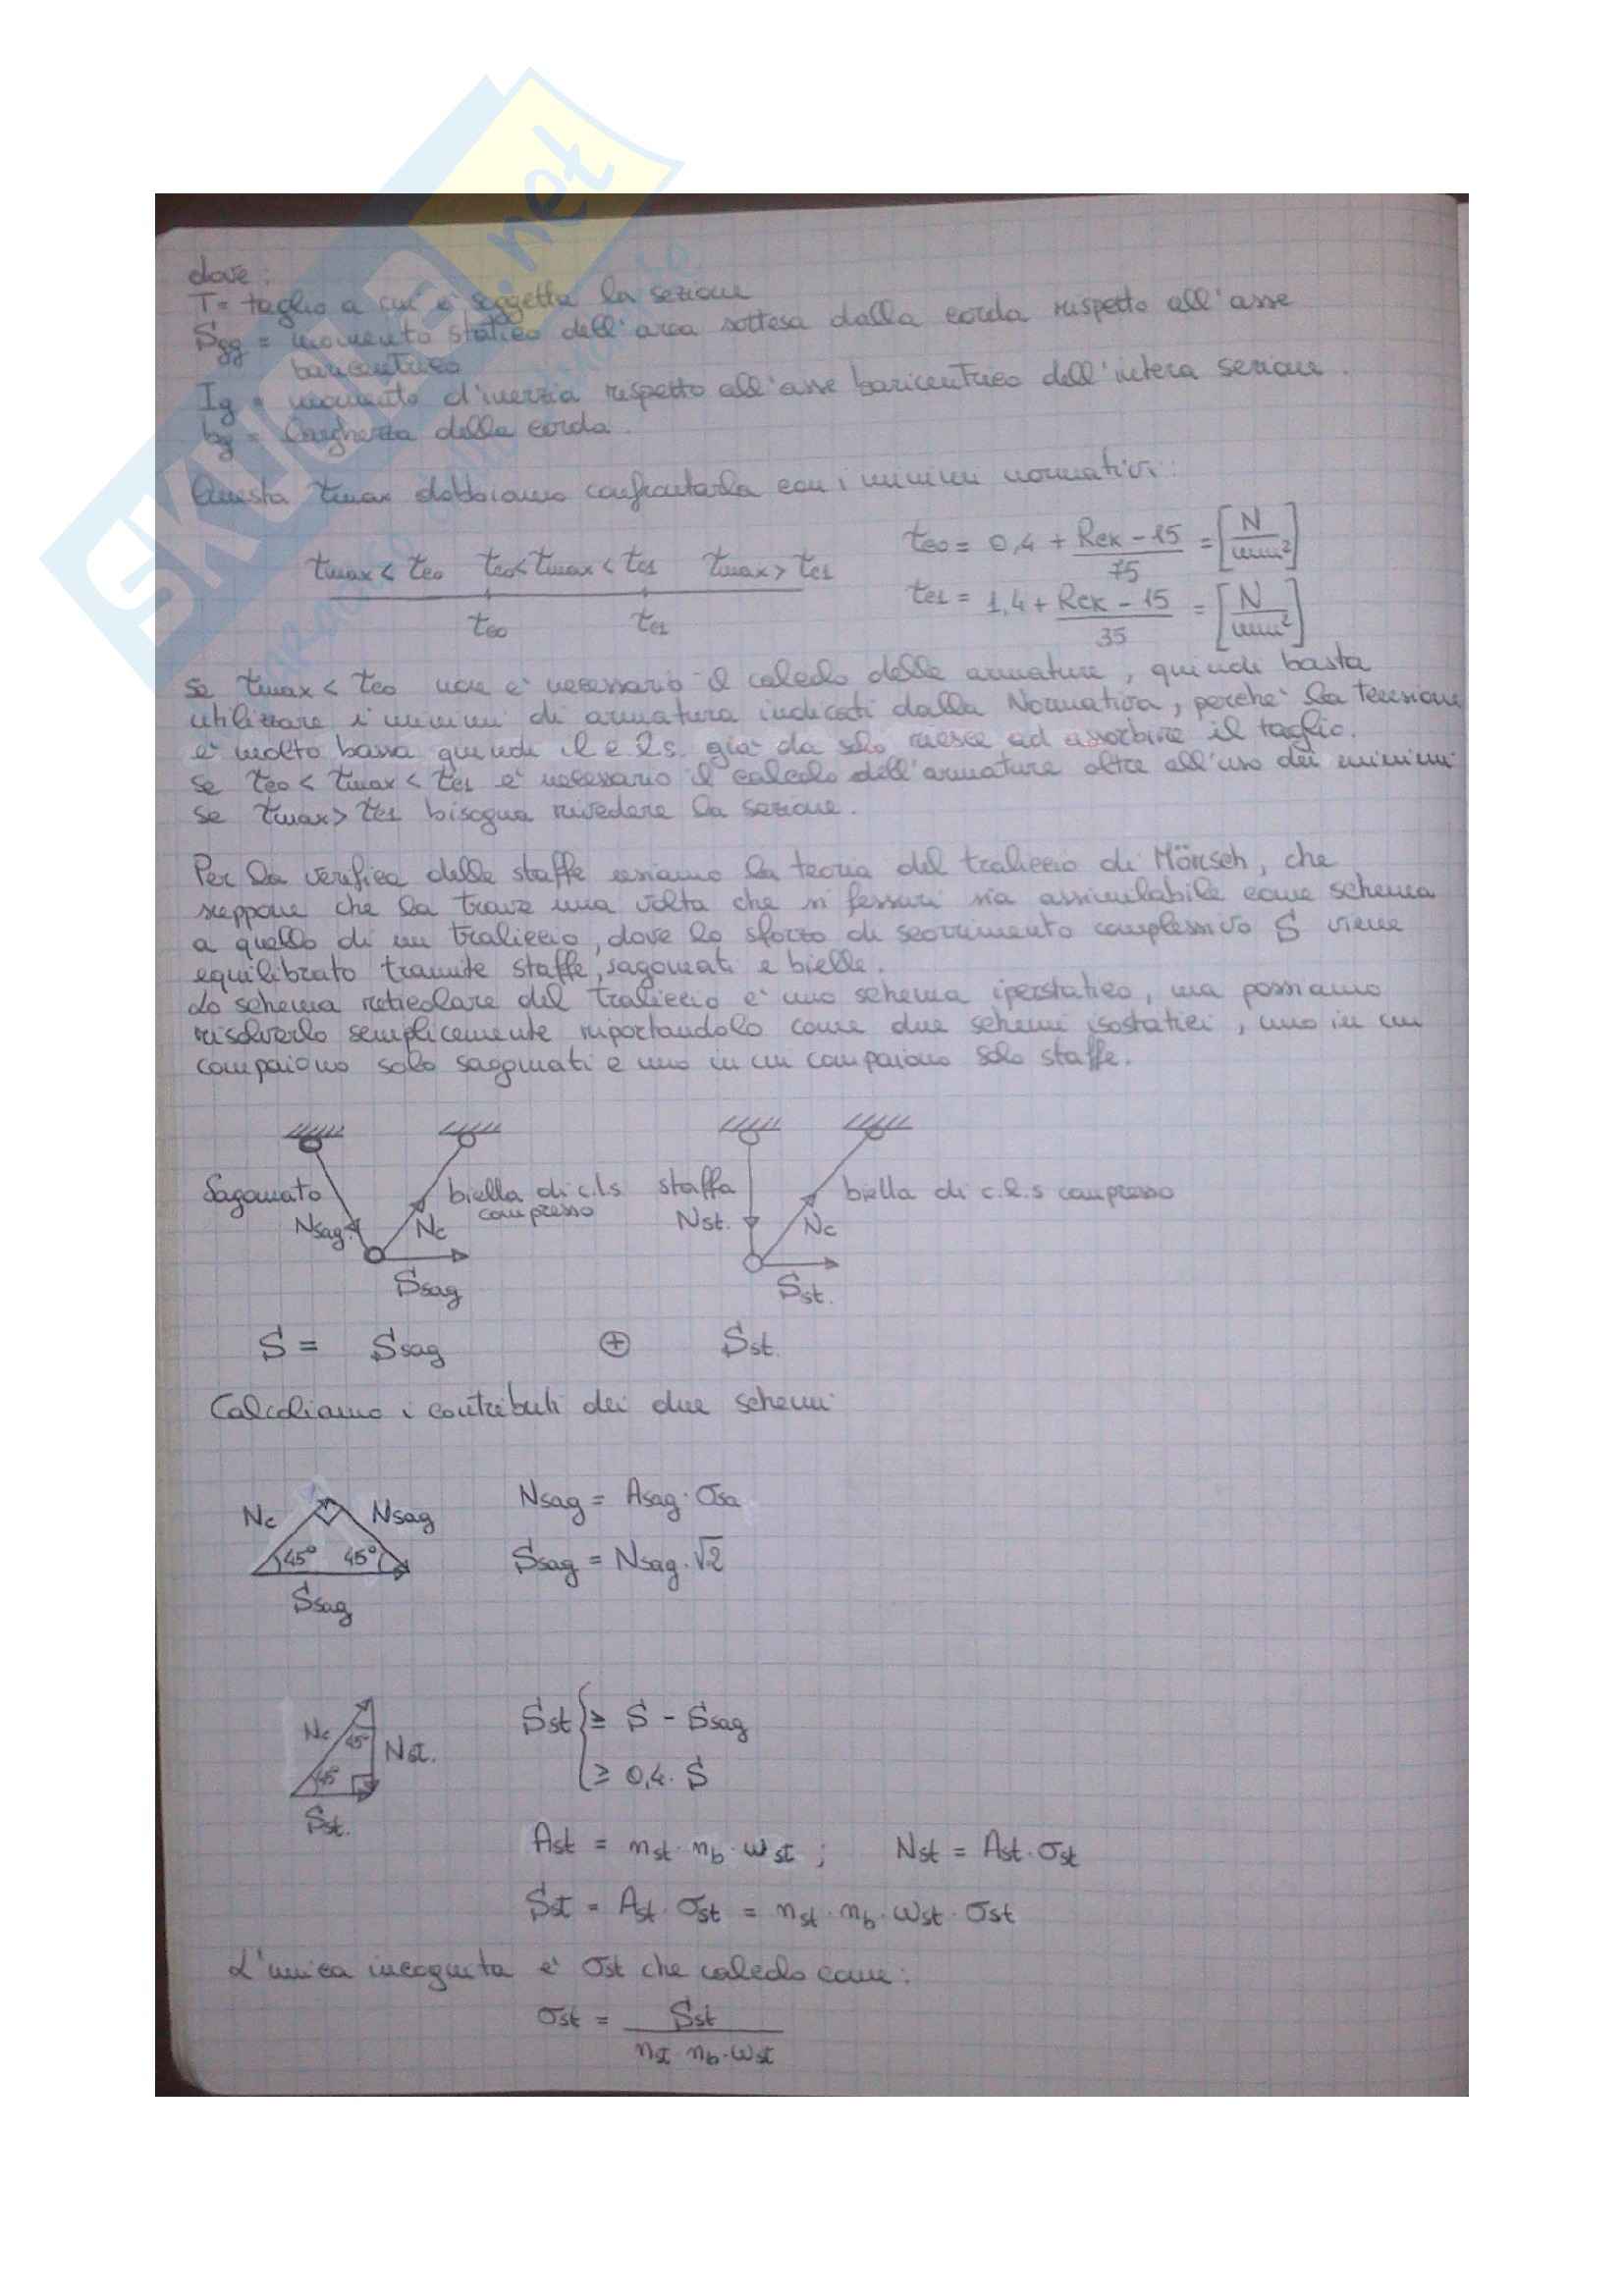 SKUOLA.net
dove:
T = taglio a cui è soggetta la sezione
Sgg = momento statico dell'area sottesa dalla corda rispetto all'asse
baricentrico
Ig = momento d'inerzia rispetto all'asse baricentrico dell'intera sezione.
bg = larghezza della corda.
Questa τmax dobbiamo confrontarla con i minimi normativi:
τmax < τco   τco < τmax < τc1   τmax > τc1
τco   τc1
τco = 0,4 + (Rck - 15)/75 = [N/mm²]
τc1 = 1,4 + (Rck - 15)/35 = [N/mm²]
se τmax < τco non è necessario il calcolo delle armature, quindi basta
utilizzare i minimi di armatura indicati dalla Normativa, perché la tensione
è molto bassa quindi il c.l.s. già da solo riesce ad assorbire il taglio.
se τco < τmax < τc1 è necessario il calcolo dell'armature oltre all'uso dei minimi
se τmax > τc1 bisogna rivedere la sezione.
Per la verifica delle staffe usiamo la teoria del traliccio di Mörsch, che
suppone che la trave una volta che si fessuri sia assimilabile come schema
a quello di un traliccio, dove lo sforzo di scorrimento complessivo S viene
equilibrato tramite staffe, sagomati e bielle.
Lo schema reticolare del traliccio è uno schema iperstatico, ma possiamo
risolverlo semplicemente riportandolo come due schemi isostatici, uno in cui
compaiono solo sagomati e uno in cui compaiono solo staffe.
Sagomato   biella di c.l.s compresso   staffa   biella di c.l.s compresso
Nsag   Nc   Nst.   Nc
Ssag   Sst.
S = Ssag ⊕ Sst.
Calcoliamo i contributi dei due schemi
Nc   Nsag   Nsag = Asag · σsa
45°   45°   Ssag = Nsag · √2
Ssag
Nc   45°   Nst.   Sst { ≥ S - Ssag
45°   ≥ 0,4 · S
Sst.
Ast = nst · nb · ωst ;   Nst = Ast · σst
Sst = Ast · σst = nst · nb · ωst · σst
L'unica incognita è σst che calcolo come:
σst = Sst / (nst · nb · ωst)